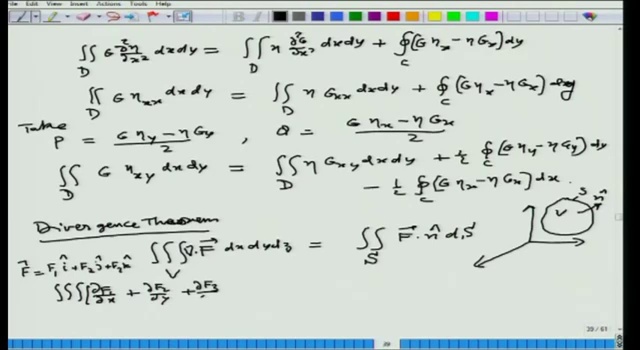 File Edit View Insert Actions Tools Help
∬_D G ∂²η/∂x² dxdy = ∬_D η ∂²G/∂x² dxdy + ∮_C (G η_x − η G_x) dy
∬_D G η_xx dxdy = ∬_D η G_xx dxdy + ∮_C (G η_x − η G_x) dy
Take P = (G η_y − η G_y)/2 , Q = (G η_x − η G_x)/2
∬_D G η_xy dxdy = ∬_D η G_xy dxdy + ½ ∮_C (G η_y − η G_y) dy
− ½ ∮_C (G η_x − η G_x) dx.
Divergence Theorem
S
V
n̂
∭_V ∇·F⃗ dxdydz = ∬_S F⃗·n̂ dS
F⃗ = F₁î + F₂ĵ + F₃k̂
∭[∂F₁/∂x + ∂F₂/∂y + ∂F₃/
29 / 61
39